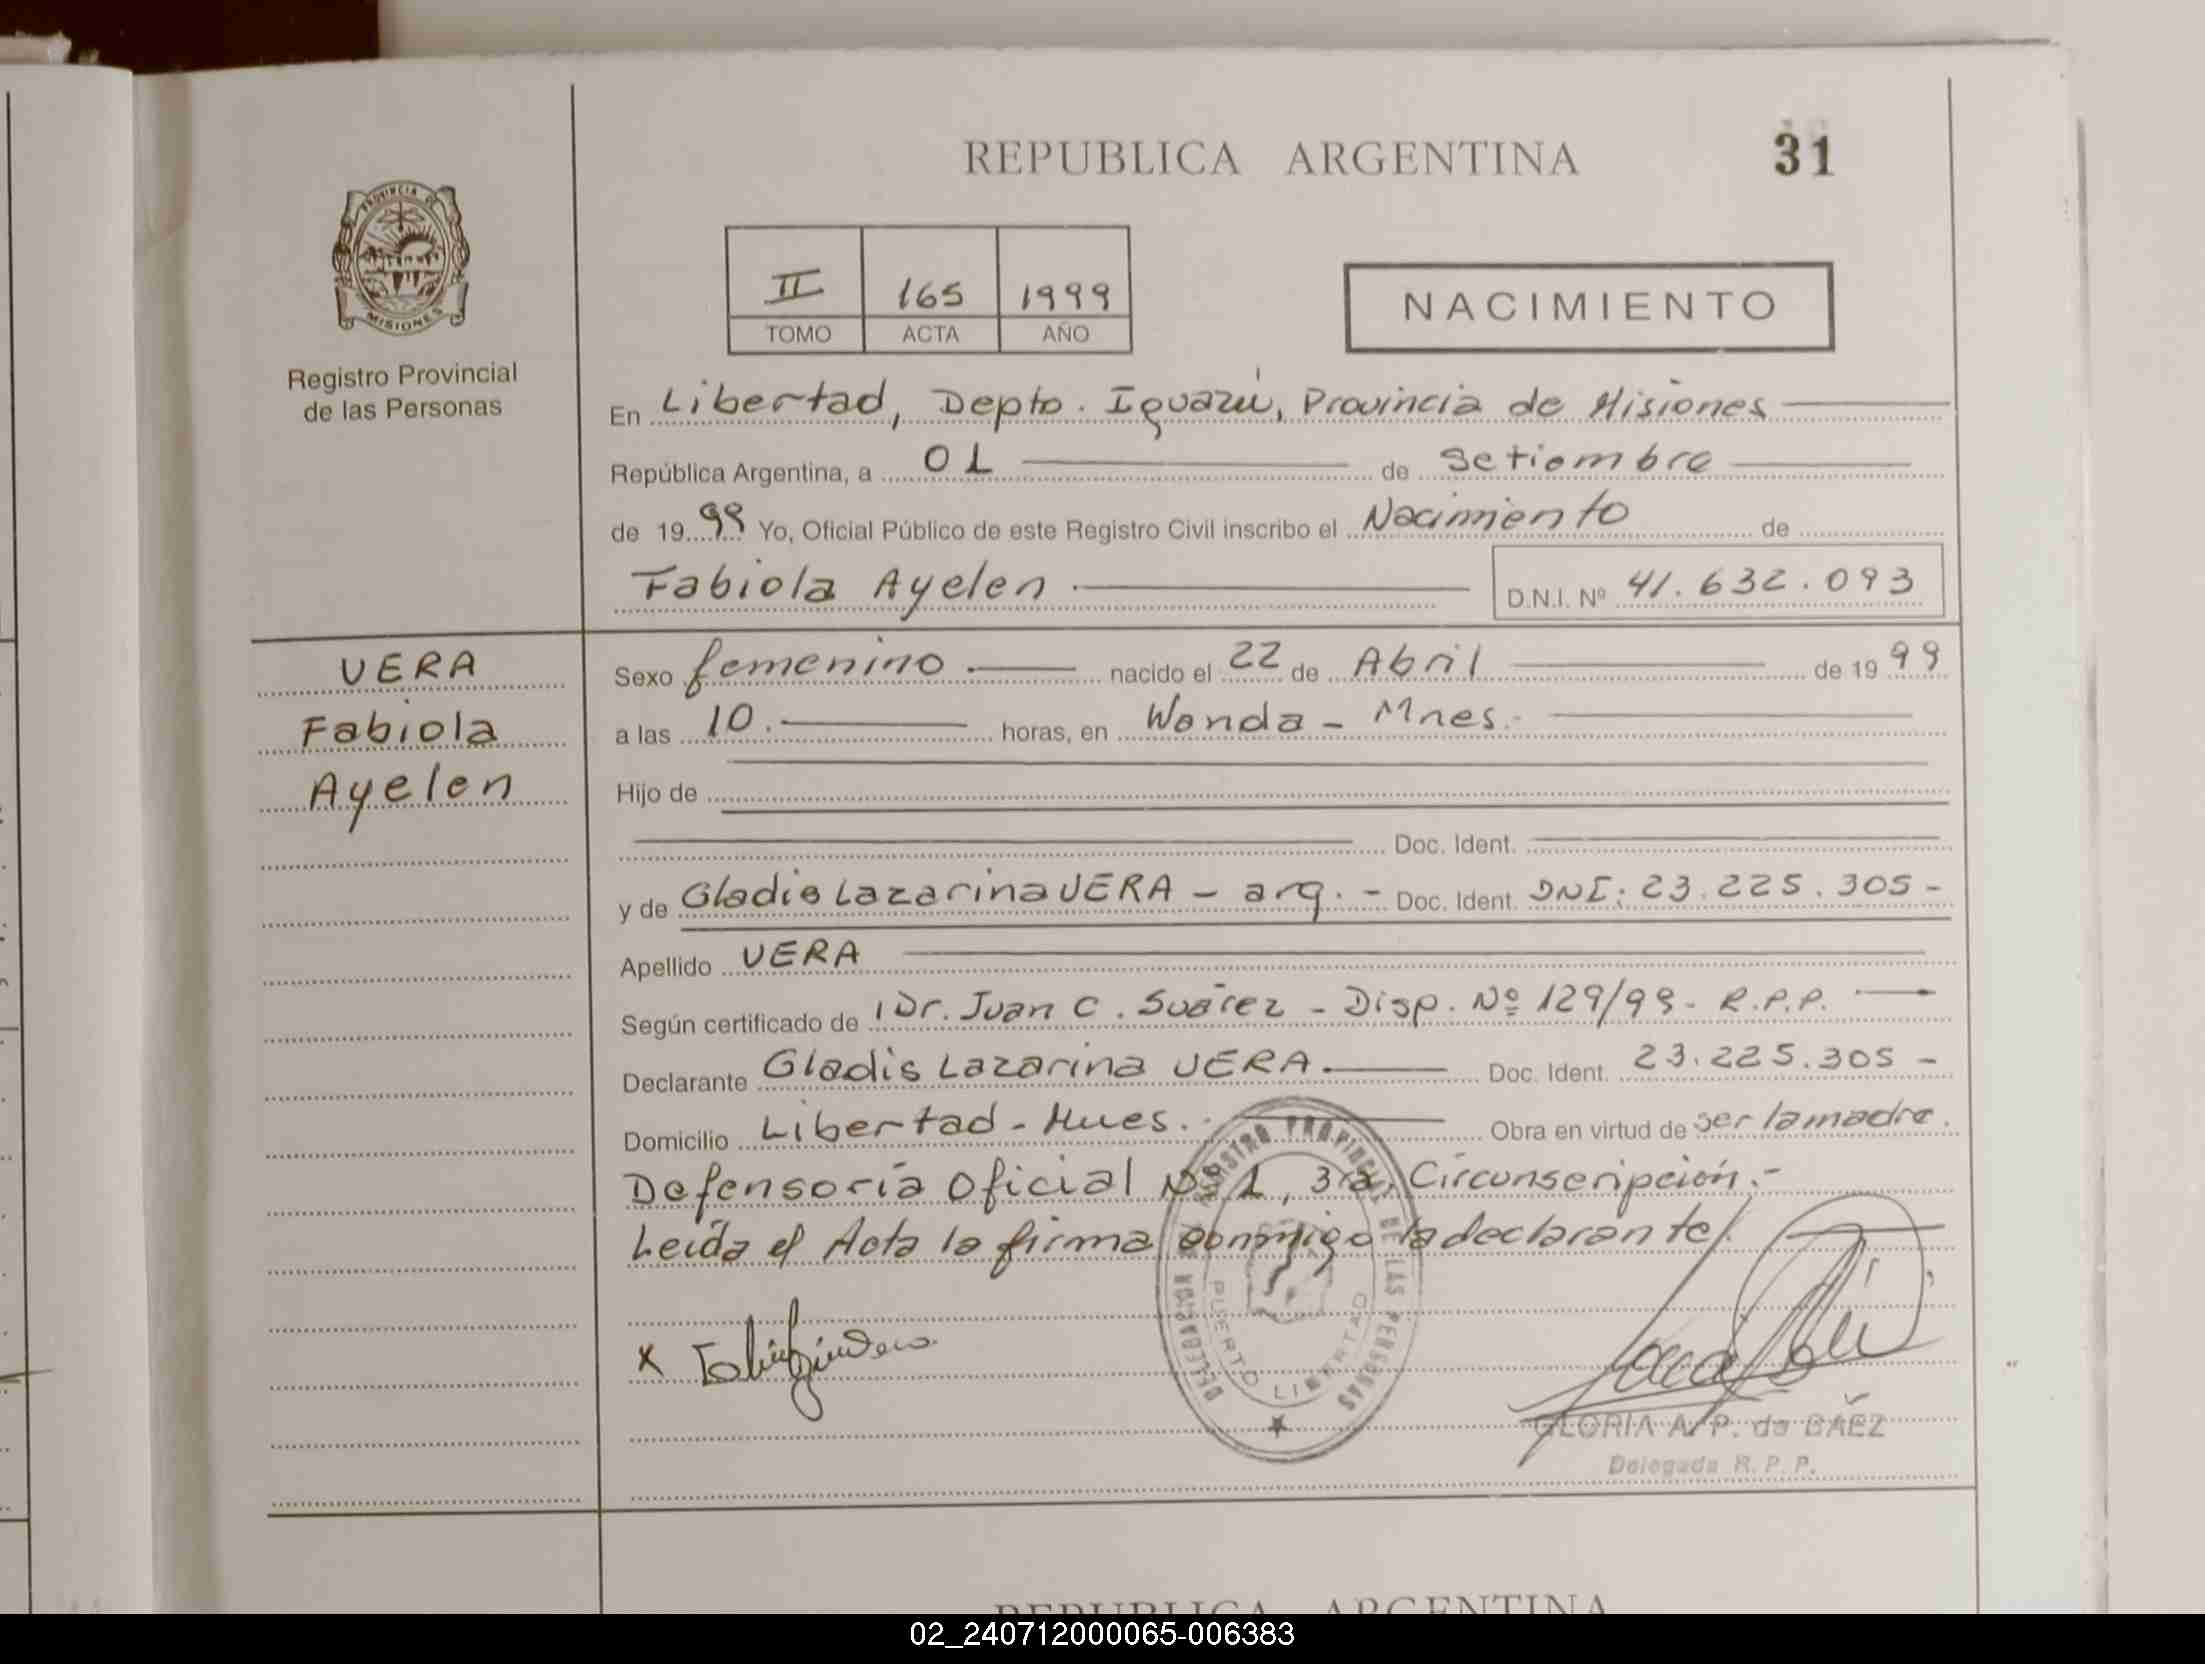 REPUBLICA ARGENTINA
31
PROVINCIA DE
MISIONES
Registro Provincial
de las Personas
II 165 1999
TOMO ACTA AÑO
NACIMIENTO
En Libertad, Depto. Iguazú, Provincia de Misiones
República Argentina, a 01 de Setiembre
de 19 99 Yo, Oficial Público de este Registro Civil inscribo el Nacimiento de
Fabiola Ayelen D.N.I. Nº 41.632.093
VERA
Fabiola
Ayelen
Sexo femenino nacido el 22 de Abril de 19 99
a las 10. horas, en Wanda - Mnes.-
Hijo de
Doc. Ident.
y de Gladis Lazarina VERA - arg. - Doc. Ident. DNI: 23.225.305 -
Apellido VERA
Según certificado de Dr. Juan C. Suárez - Disp. Nº 129/99 - R.P.P.
Declarante Gladis Lazarina VERA. Doc. Ident. 23.225.305 -
Domicilio Libertad - Mnes. Obra en virtud de ser la madre.
Defensoría Oficial Nº 1, 3ra. Circunscripción.-
Leída el Acta la firma conmigo la declarante.
x
DELEGACION REGISTRO PROVINCIAL DE LAS PERSONAS
PUERTO LIBERTAD
GLORIA A. P. de BÁEZ
Delegada R. P. P.
REPUBLICA ARGENTINA
02_240712000065-006383